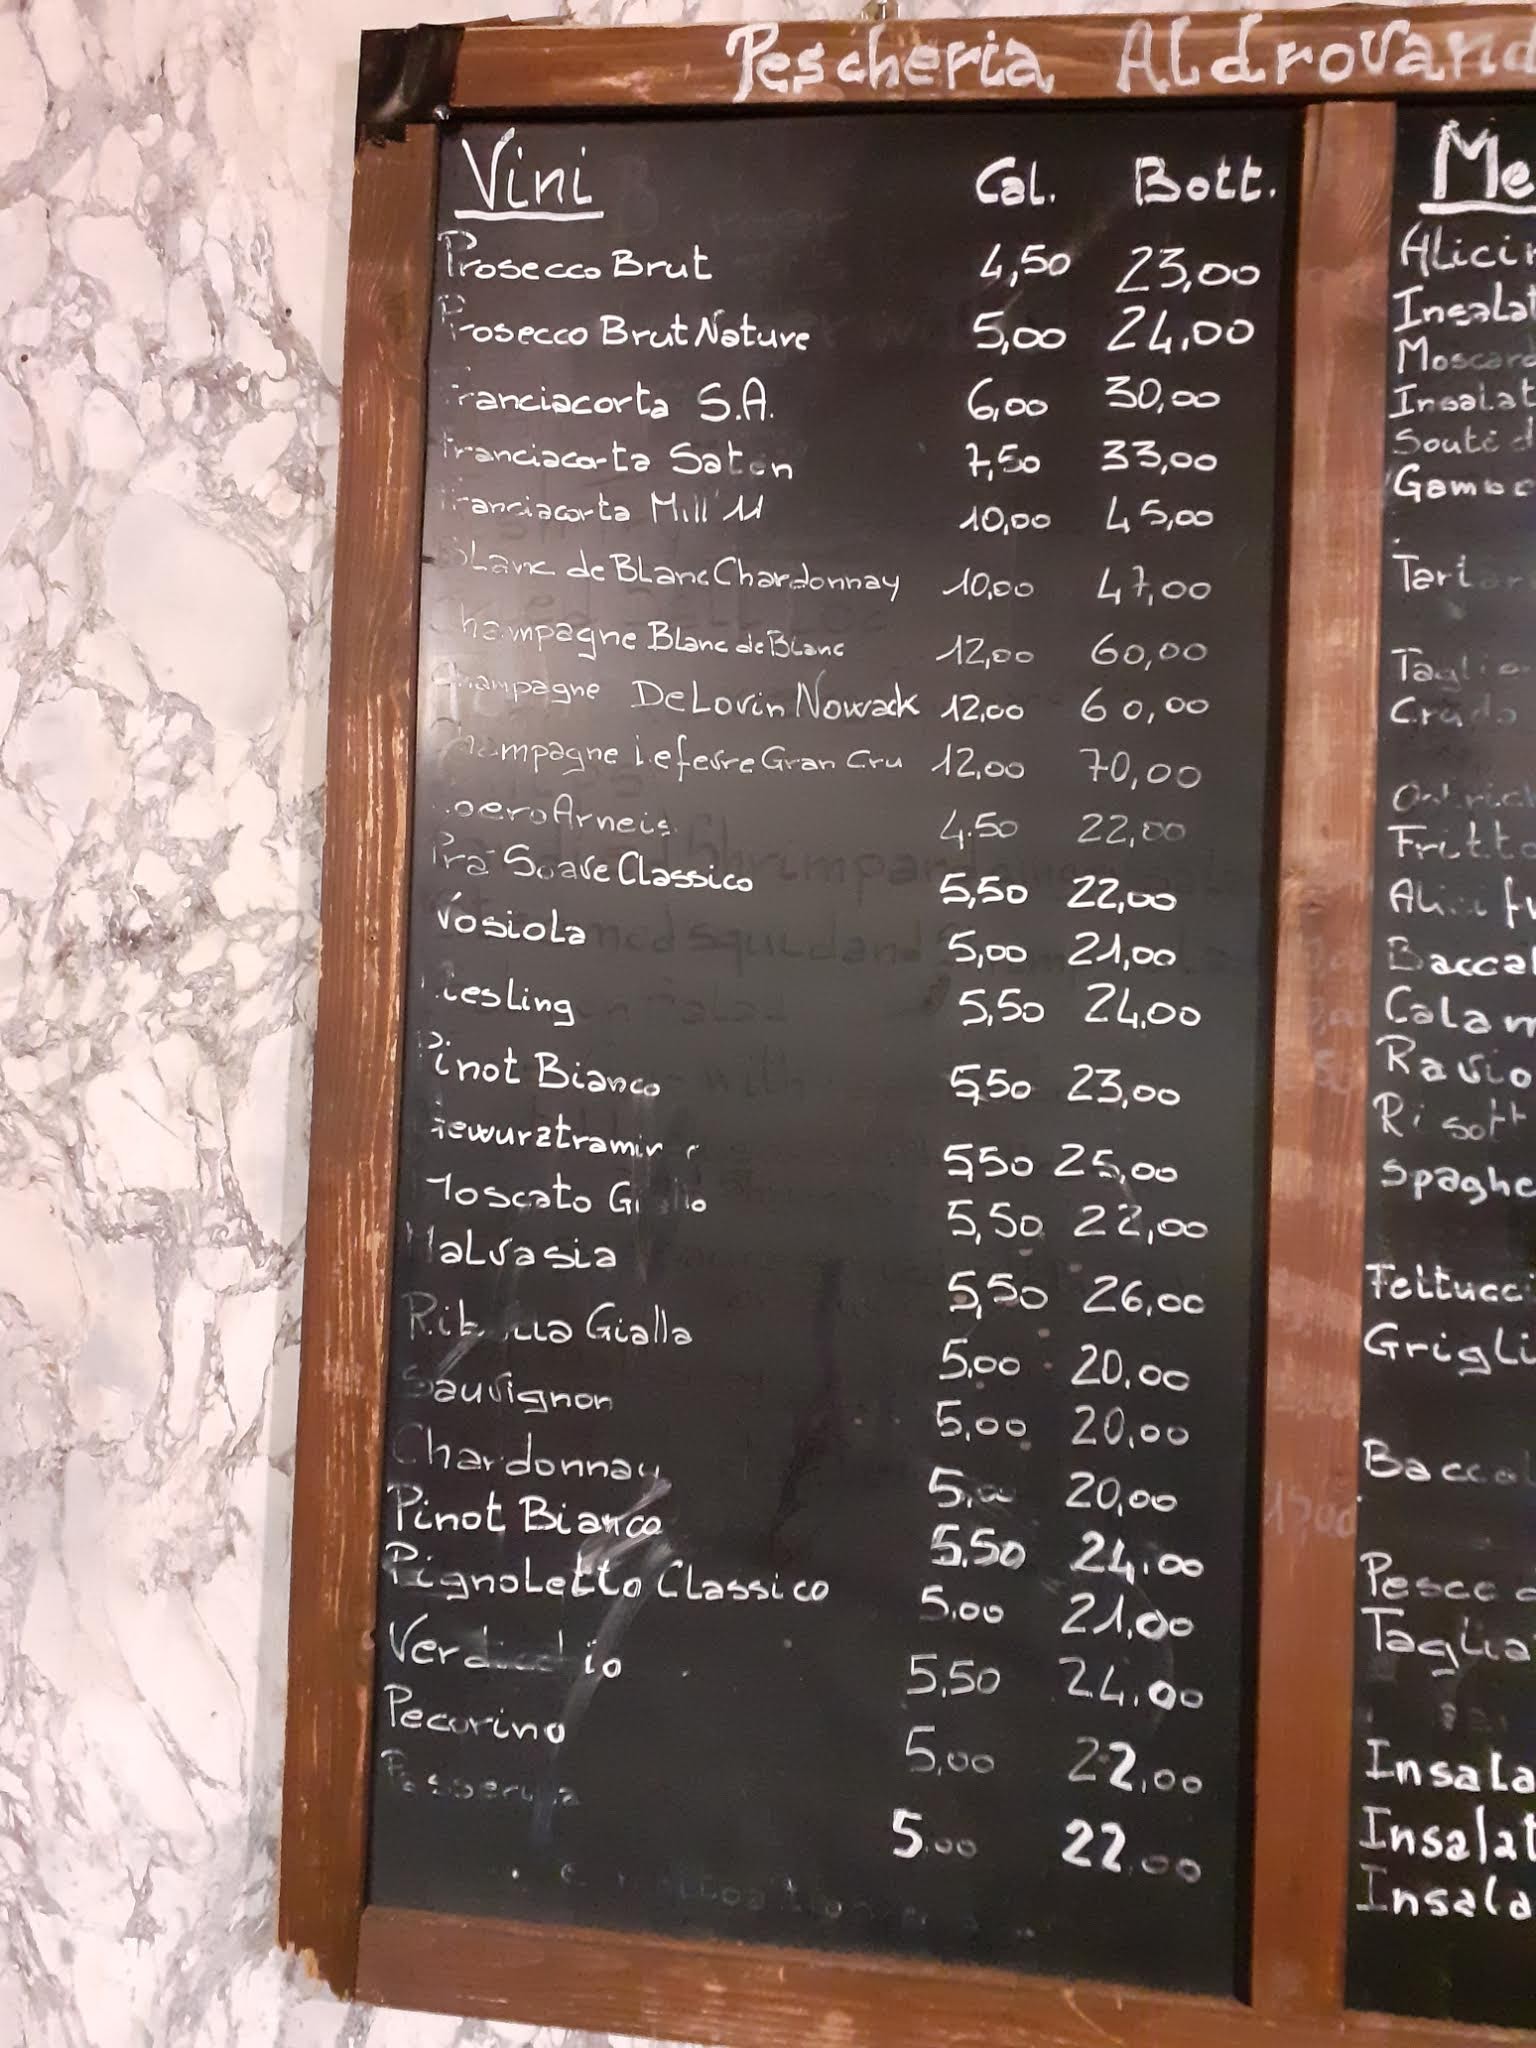 Pescheria Aldrovand
Vini Cal. Bott.
Prosecco Brut 4,50 23,00
Prosecco Brut Nature 5,00 24,00
Franciacorta S.A. 6,00 30,00
Franciacorta Saten 7,50 33,00
Franciacorta Mill' 11 10,00 45,00
Blanc de Blanc Chardonnay 10,00 47,00
Champagne Blanc de Blanc 12,00 60,00
Champagne De Lovin Nowack 12,00 60,00
Champagne Lefevre Gran Cru 12,00 70,00
Roero Arneis 4.50 22,00
Pra Soave Classico 5,50 22,00
Vosiola 5,00 21,00
Riesling 5,50 24,00
Pinot Bianco 5,50 23,00
Gewurztramin r 5,50 25,00
Moscato Giallo 5,50 22,00
Malvasia 5,50 26,00
Ribolla Gialla 5,00 20,00
Sauvignon 5,00 20,00
Chardonnay 5,00 20,00
Pinot Bianco 5.50 24,00
Pignoletto Classico 5.00 21,00
Verdicchio 5,50 24,00
Pecorino 5,00 22,00
Passerina 5.00 22,00
Me
Alici
Insalat
Moscard
Insalat
Souté d
Gambe
Tartar
Taglio
Crudo
Ostrich
Fritto
Alici fr
Baccal
Calam
Ravio
Risott
Spaghe
Fettucci
Grigli
Baccal
Pesce
Taglia
Insala
Insalat
Insala